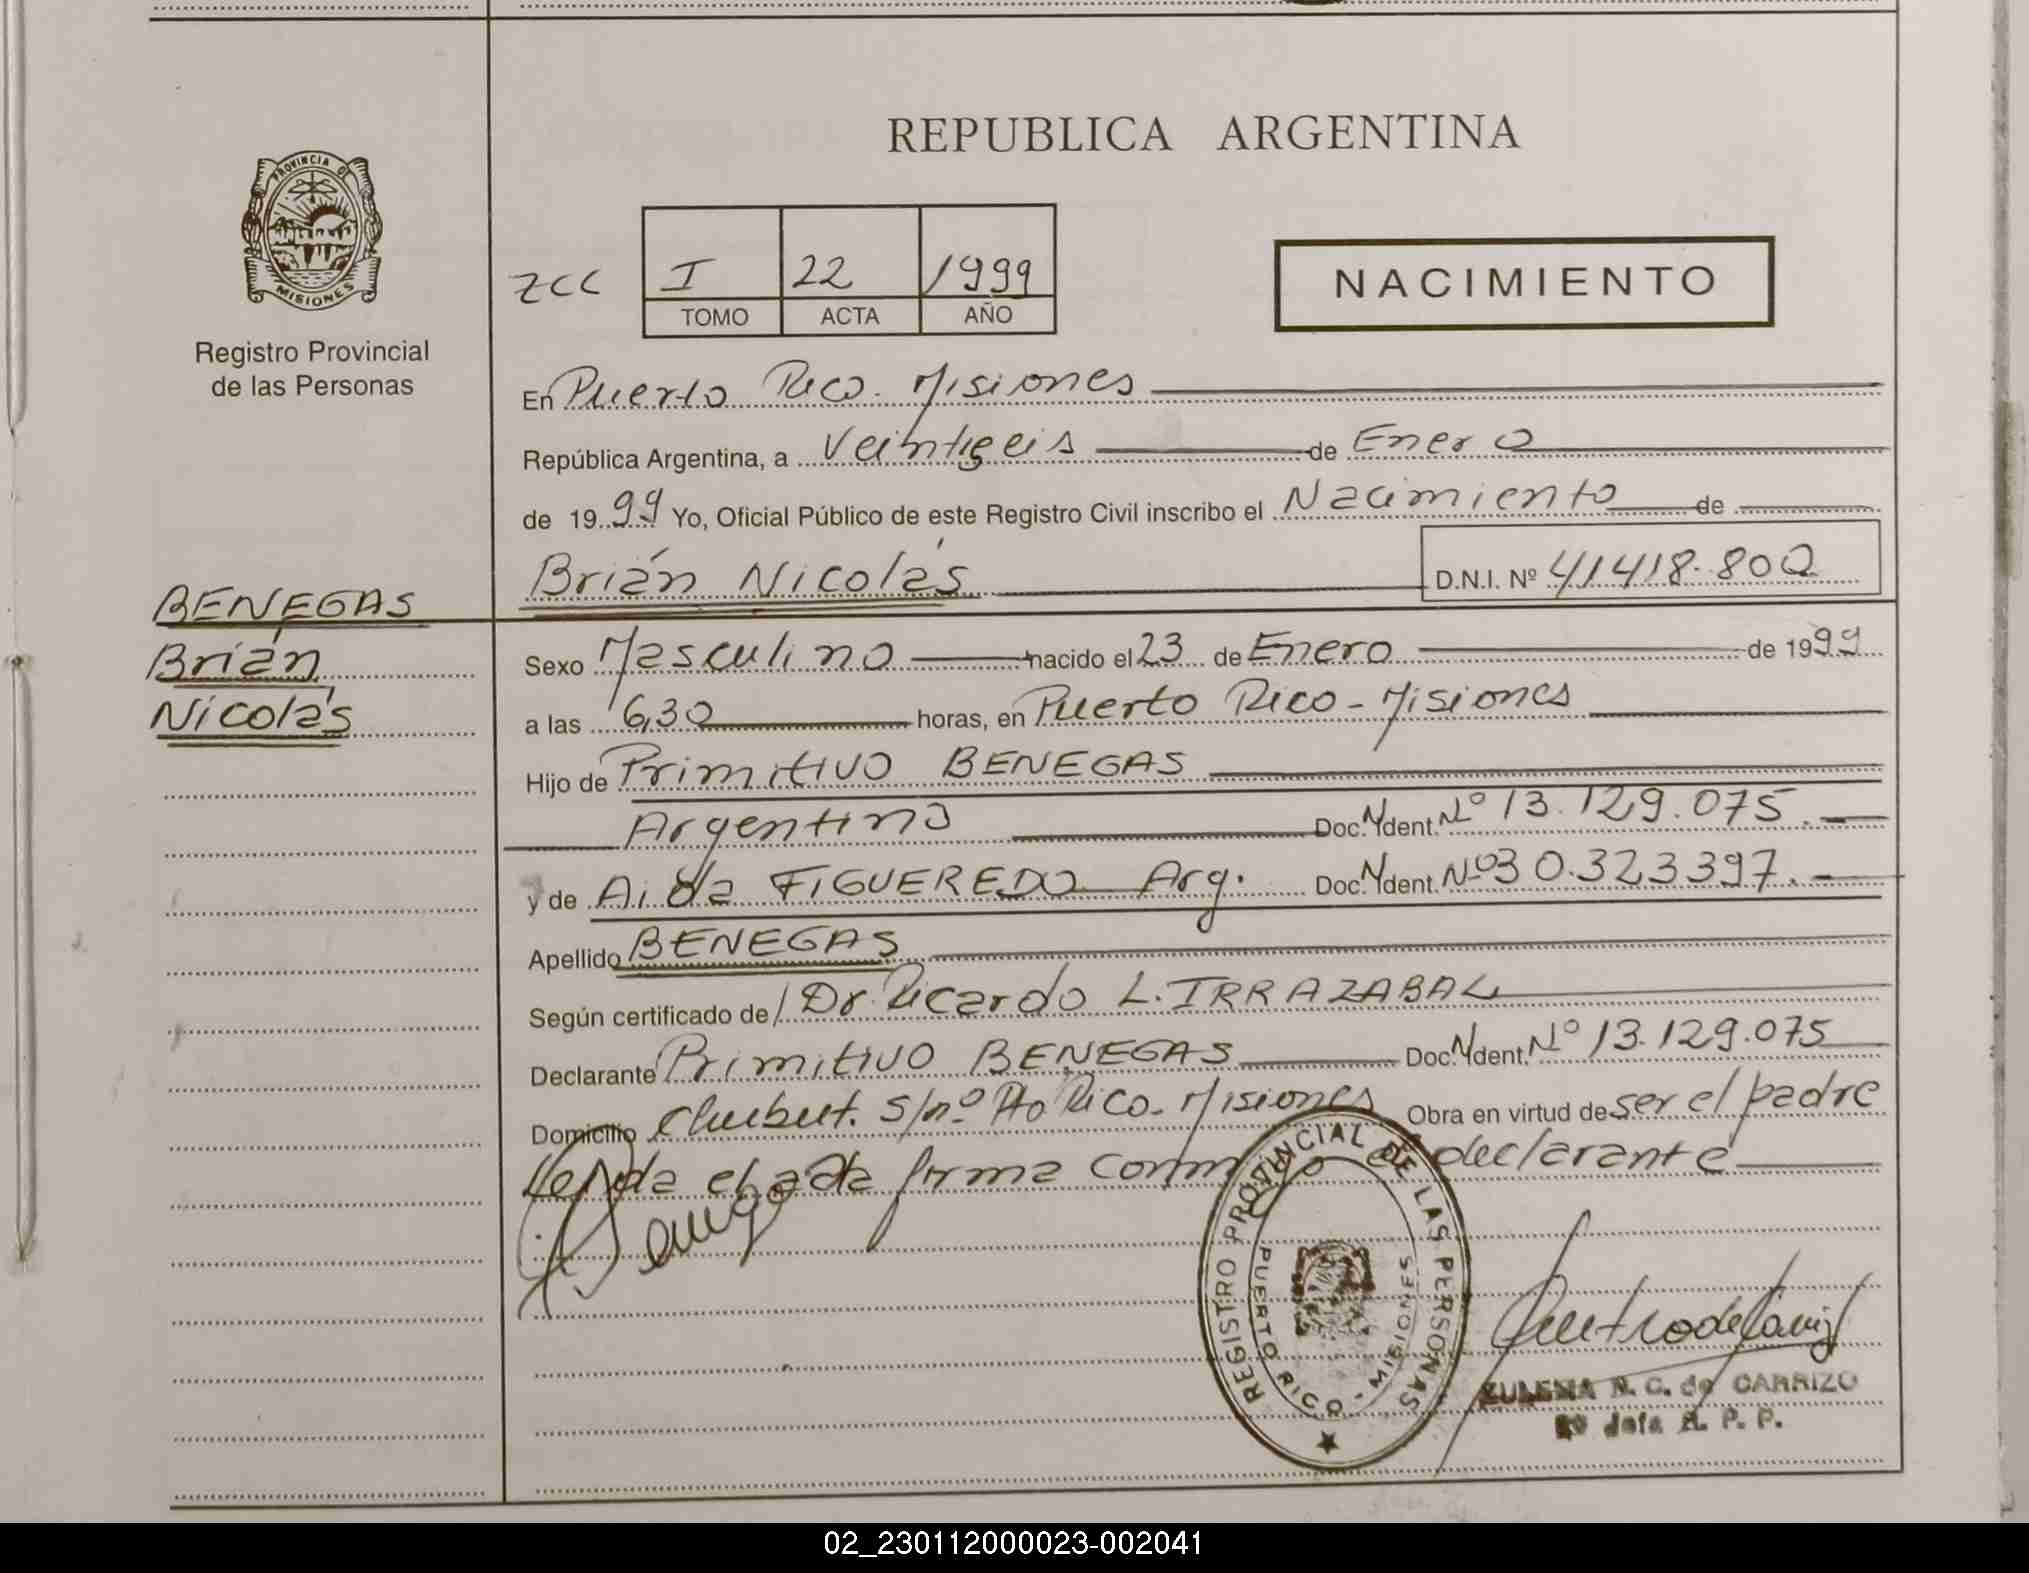 REPUBLICA ARGENTINA
PROVINCIA DE
MISIONES
Registro Provincial
de las Personas
ZCC
I 22 1999
TOMO ACTA AÑO
NACIMIENTO
En Puerto Rico. Misiones
República Argentina, a Veintiseis de Enero
de 1999 Yo, Oficial Público de este Registro Civil inscribo el Nacimiento de
Brián Nicolás
D.N.I. Nº 41418.800
BENEGAS
Brián
Nicolás
Sexo Masculino nacido el 23 de Enero de 1999
a las 6,30 horas, en Puerto Rico - Misiones
Hijo de Primitivo BENEGAS
Argentino Doc. Ident. Nº 13.129.075.
y de Aida FIGUEREDO Arg. Doc. Ident. Nº 30.323397.
Apellido BENEGAS
Según certificado de Dr. Ricardo L. IRRAZABAL
Declarante Primitivo BENEGAS Doc. Ident. Nº 13.129.075
Domicilio Chubut. S/nº Pto Rico. Misiones Obra en virtud de ser el padre
Leida el acta firma conmigo el declarante
REGISTRO PROVINCIAL DE LAS PERSONAS
PUERTO RICO - MISIONES
ZULEMA N. C. de CARRIZO
Jefa R. P. P.
02_230112000023-002041